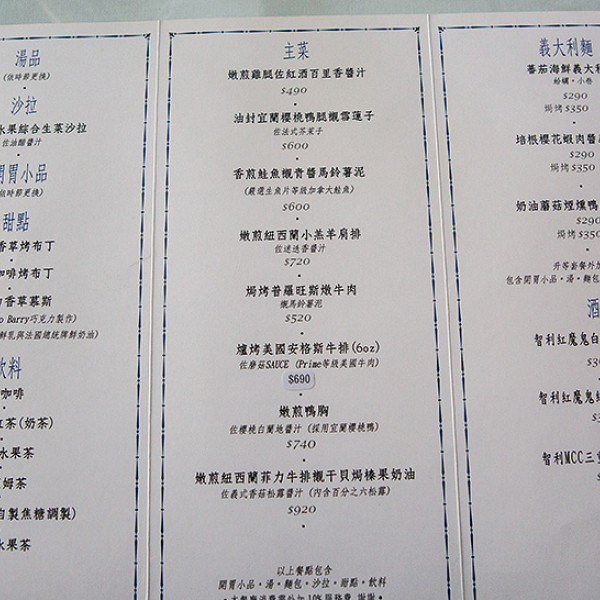 湯品
(依時節更換)
沙拉
水果綜合生菜沙拉
佐油醋醬汁
開胃小品
(依時節更換)
甜點
香草烤布丁
咖啡烤布丁
香草慕斯
o Barry巧克力製作)
鮮乳與法國總統牌鮮奶油)
飲料
咖啡
紅茶(奶茶)
水果茶
姆茶
自製焦糖調製)
水果茶
主菜
嫩煎雞腿佐紅酒百里香醬汁
$490
油封宜蘭櫻桃鴨腿襯雪蓮子
佐法式芥茉子
$600
香煎鮭魚襯青醬馬鈴薯泥
(嚴選生魚片等級加拿大鮭魚)
$600
嫩煎紐西蘭小羔羊肩排
佐迷迭香醬汁
$720
焗烤普羅旺斯燉牛肉
襯馬鈴薯泥
$520
爐烤美國安格斯牛排(6oz)
佐蘑菇SAUCE (Prime等級美國牛肉)
$690
嫩煎鴨胸
佐櫻桃白蘭地醬汁 (採用宜蘭櫻桃鴨)
$740
嫩煎紐西蘭菲力牛排襯干貝焗榛果奶油
佐義式香菇松露醬汁 (內含百分之六松露)
$920
以上餐點包含
開胃小品・湯・麵包・沙拉・甜點・飲料
・本餐廳消費需外加10%服務費 謝謝・
義大利麵
蕃茄海鮮義大利
蛤蠣・小卷
$290
焗烤 $350
培根櫻花蝦肉醬
$290
焗烤 $350
奶油蘑菇煙燻鴨
$290
焗烤 $350
升等套餐外加
包含開胃小品・湯・麵包
酒
智利紅魔鬼白
智利紅魔鬼
智利MCC三重